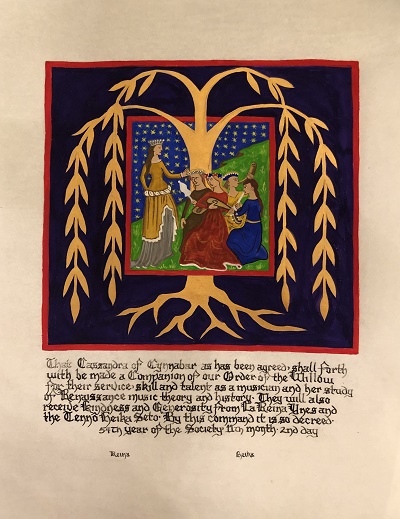 That Cassandra of Cynnabar as has been agreed shall forth
with be made a Companion of our Order of the Willow
for their service· skill and talent as a musician and her study
of Renaissance music theory and history· They will also
receive Kindness and Generosity from La Reina Ynes and
the Tenno Heika Seto· By this command it is so decreed·
54th year of the Society 11th month· 2nd day
Reina Heika